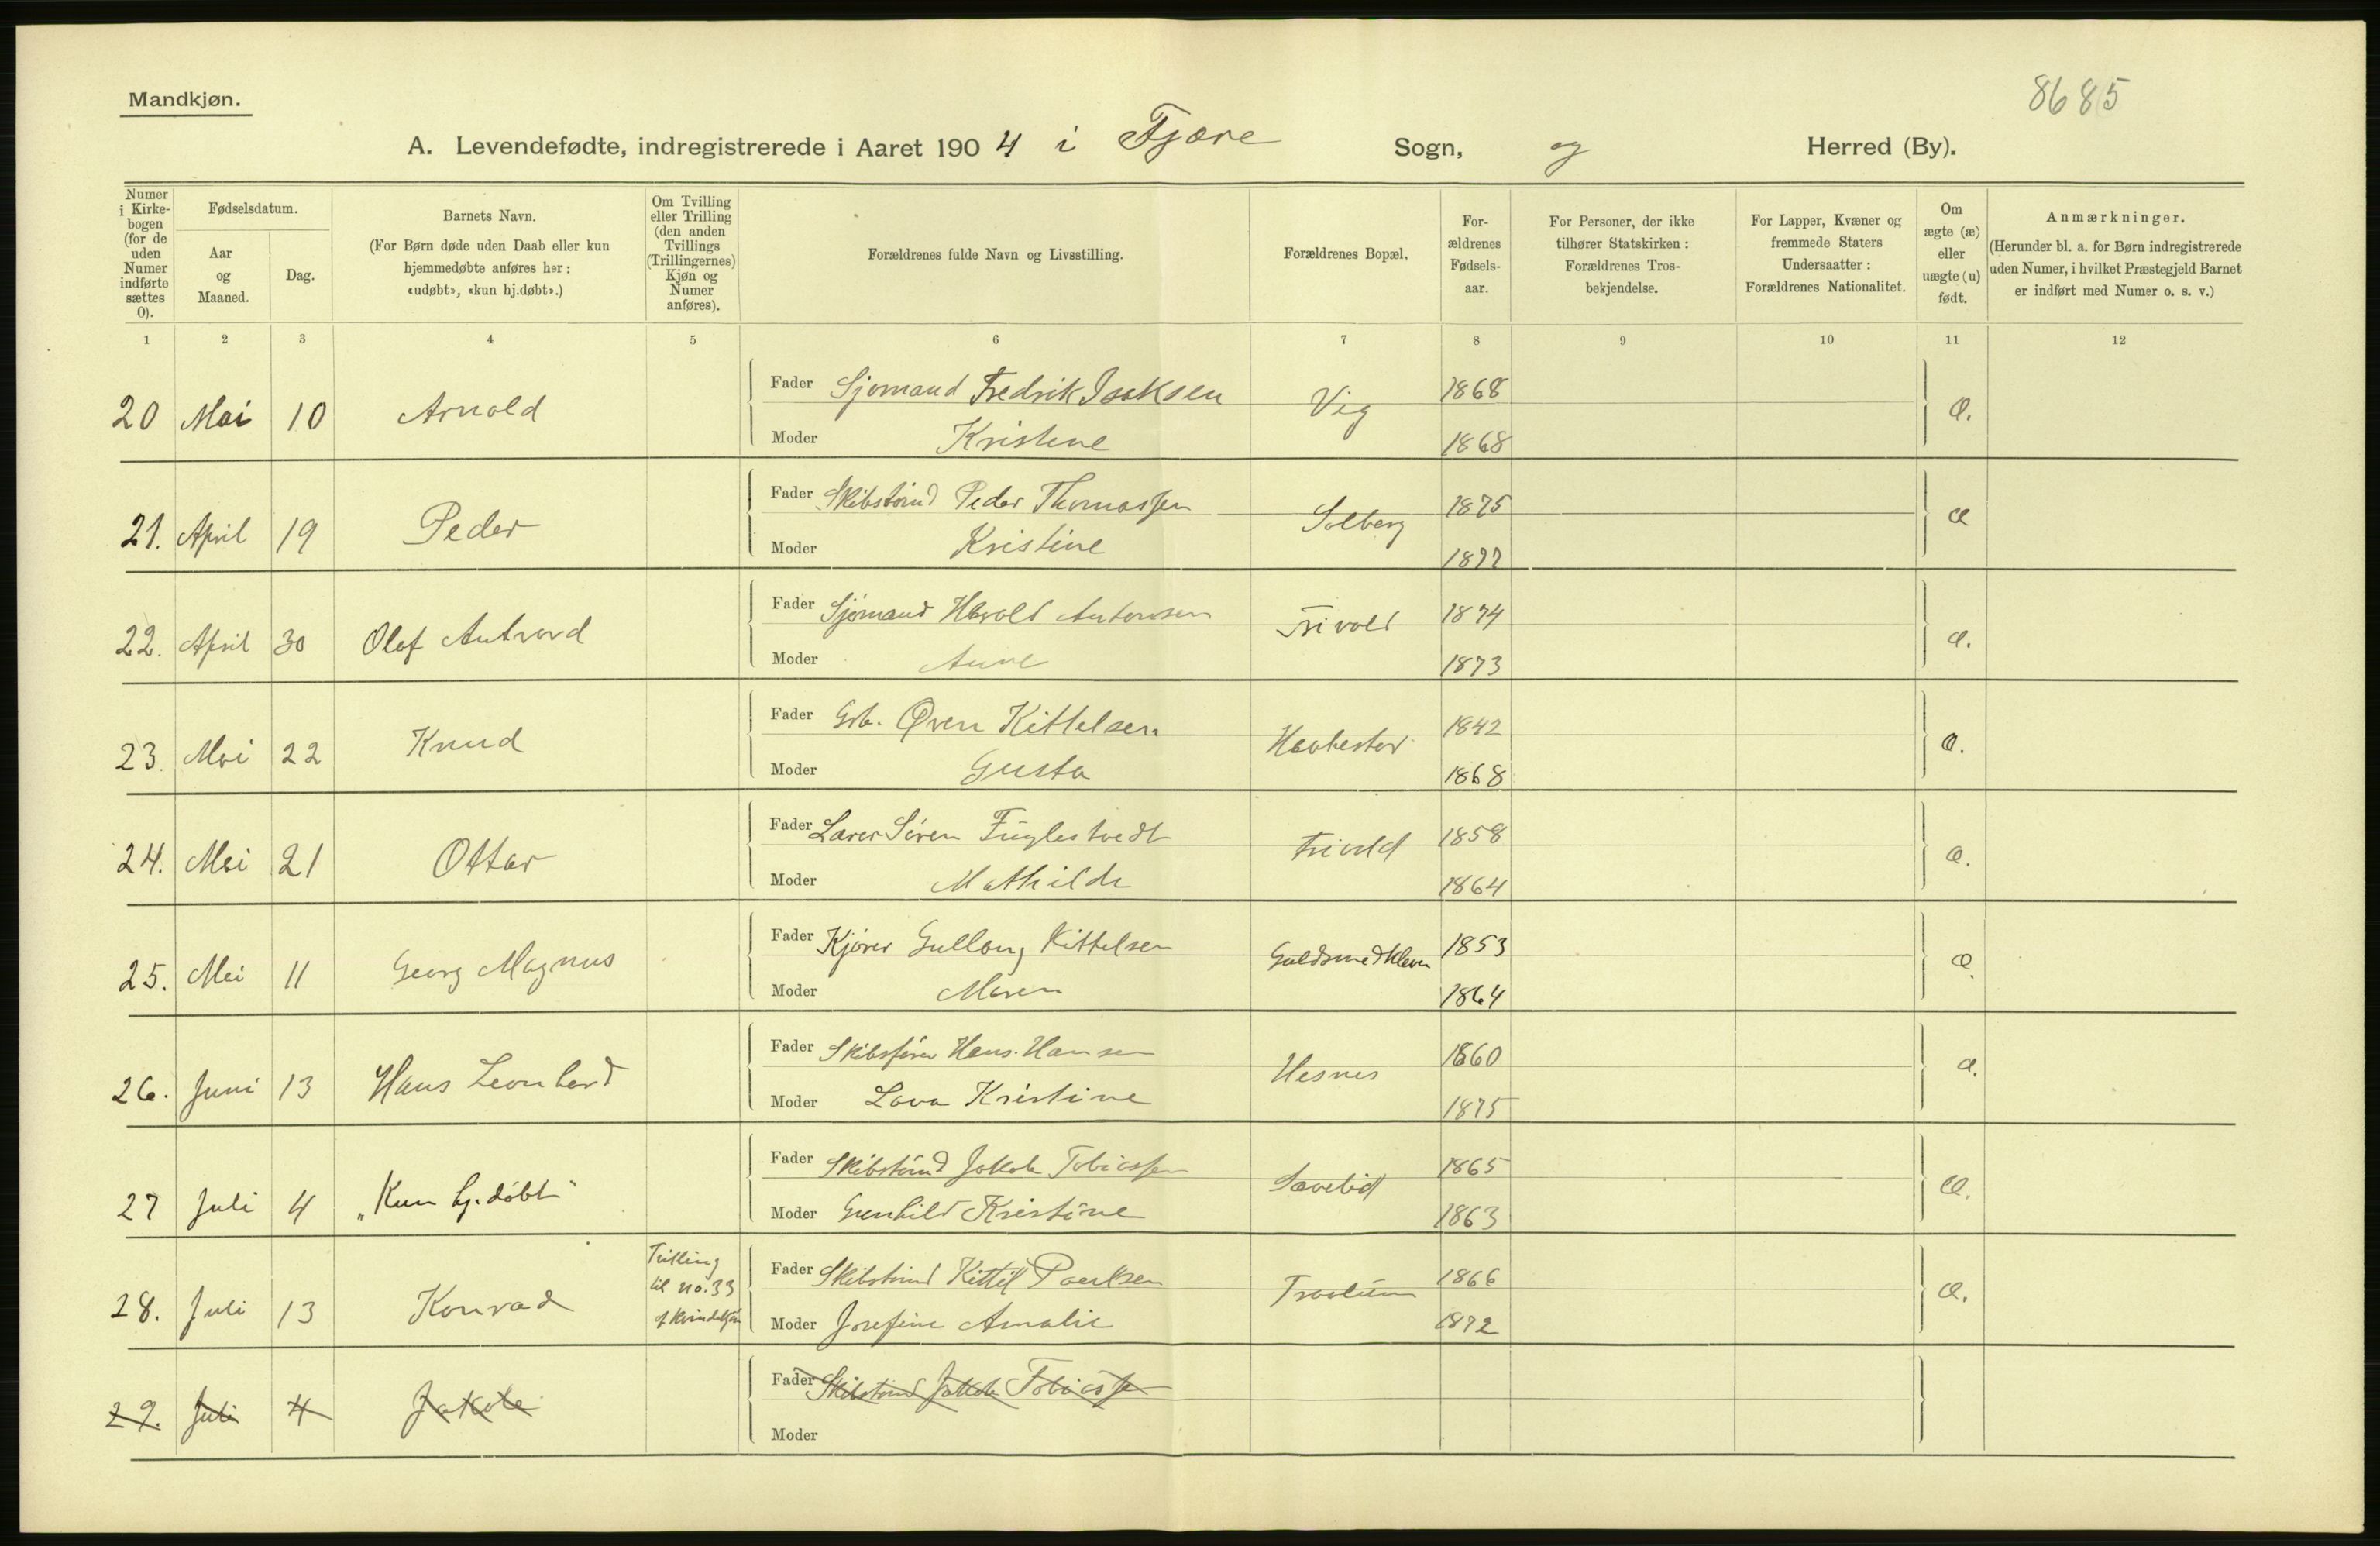 8685
Mandkjøn.
A. Levendefødte, indregistrerede i Aaret 1904 i Fjære Sogn, og Herred (By).
Numer i Kirke- bogen (for de uden Numer indførte sættes 0).
Fødselsdatum.
Aar og Maaned.
Dag.
Barnets Navn.
(For Børn døde uden Daab eller kun hjemmedøbte anføres her: «udøbt», «kun hj.døbt».)
Om Tvilling eller Trilling (den anden Tvillings (Trillingernes) Kjøn og Numer anføres).
Forældrenes fulde Navn og Livsstilling.
Forældrenes Bopæl,
For- ældrenes Fødsels- aar.
For Personer, der ikke tilhører Statskirken: Forældrenes Tros- bekjendelse.
For Lapper, Kvæner og fremmede Staters Undersaatter: Forældrenes Nationalitet.
Om ægte (æ) eller uægte (u) født.
Anmærkninger.
(Herunder bl. a. for Børn indregistrerede uden Numer, i hvilket Præstegjeld Barnet er indført med Numer o. s. v.)
1 2 3 4 5 6 7 8 9 10 11 12
20 Mai 10 Arnold Fader Sjømand Fredrik Isaksen Vig 1868 æ.
Moder Kristine 1868
21. April 19 Peder Fader Skibstømd Peder Thomassen Solberg 1875 æ
Moder Kristine 1877
22. April 30 Olaf Fader Sjømand Harald Antonsen Frivold 1874 æ.
Moder Anne 1873
23. Mai 22 Knud Fader Grb. Øven Kittelsen 1842 æ.
Moder Gusta 1868
24. Mai 21 Ottar Fader Lærer Søren Fuglestvedt Frivold 1858 æ.
Moder Mathilde 1864
25. Mai 11 Georg Magnus Fader Kjører Gullang Kittelsen Guldsmedkleven 1853 æ.
Moder Maren 1864
26. Juni 13 Hans Leonhard Fader Skibsfører Hans Hansen Hesnes 1860 æ.
Moder Lava Kristine 1875
27 Juli 4 "Kun hj.døbt" Fader Skibstømd Jakob Tobiassen 1865 æ.
Moder Gunhild Kristine 1863
28. Juli 13 Konrad Trilling til no. 33 af Kvindekjøn Fader Skibstømd Kittil Paulsen 1866 æ.
Moder Josefine Amalie 1872
29. Juli 4 Jakob Fader Skibstømd Jakob Tobiassen
Moder